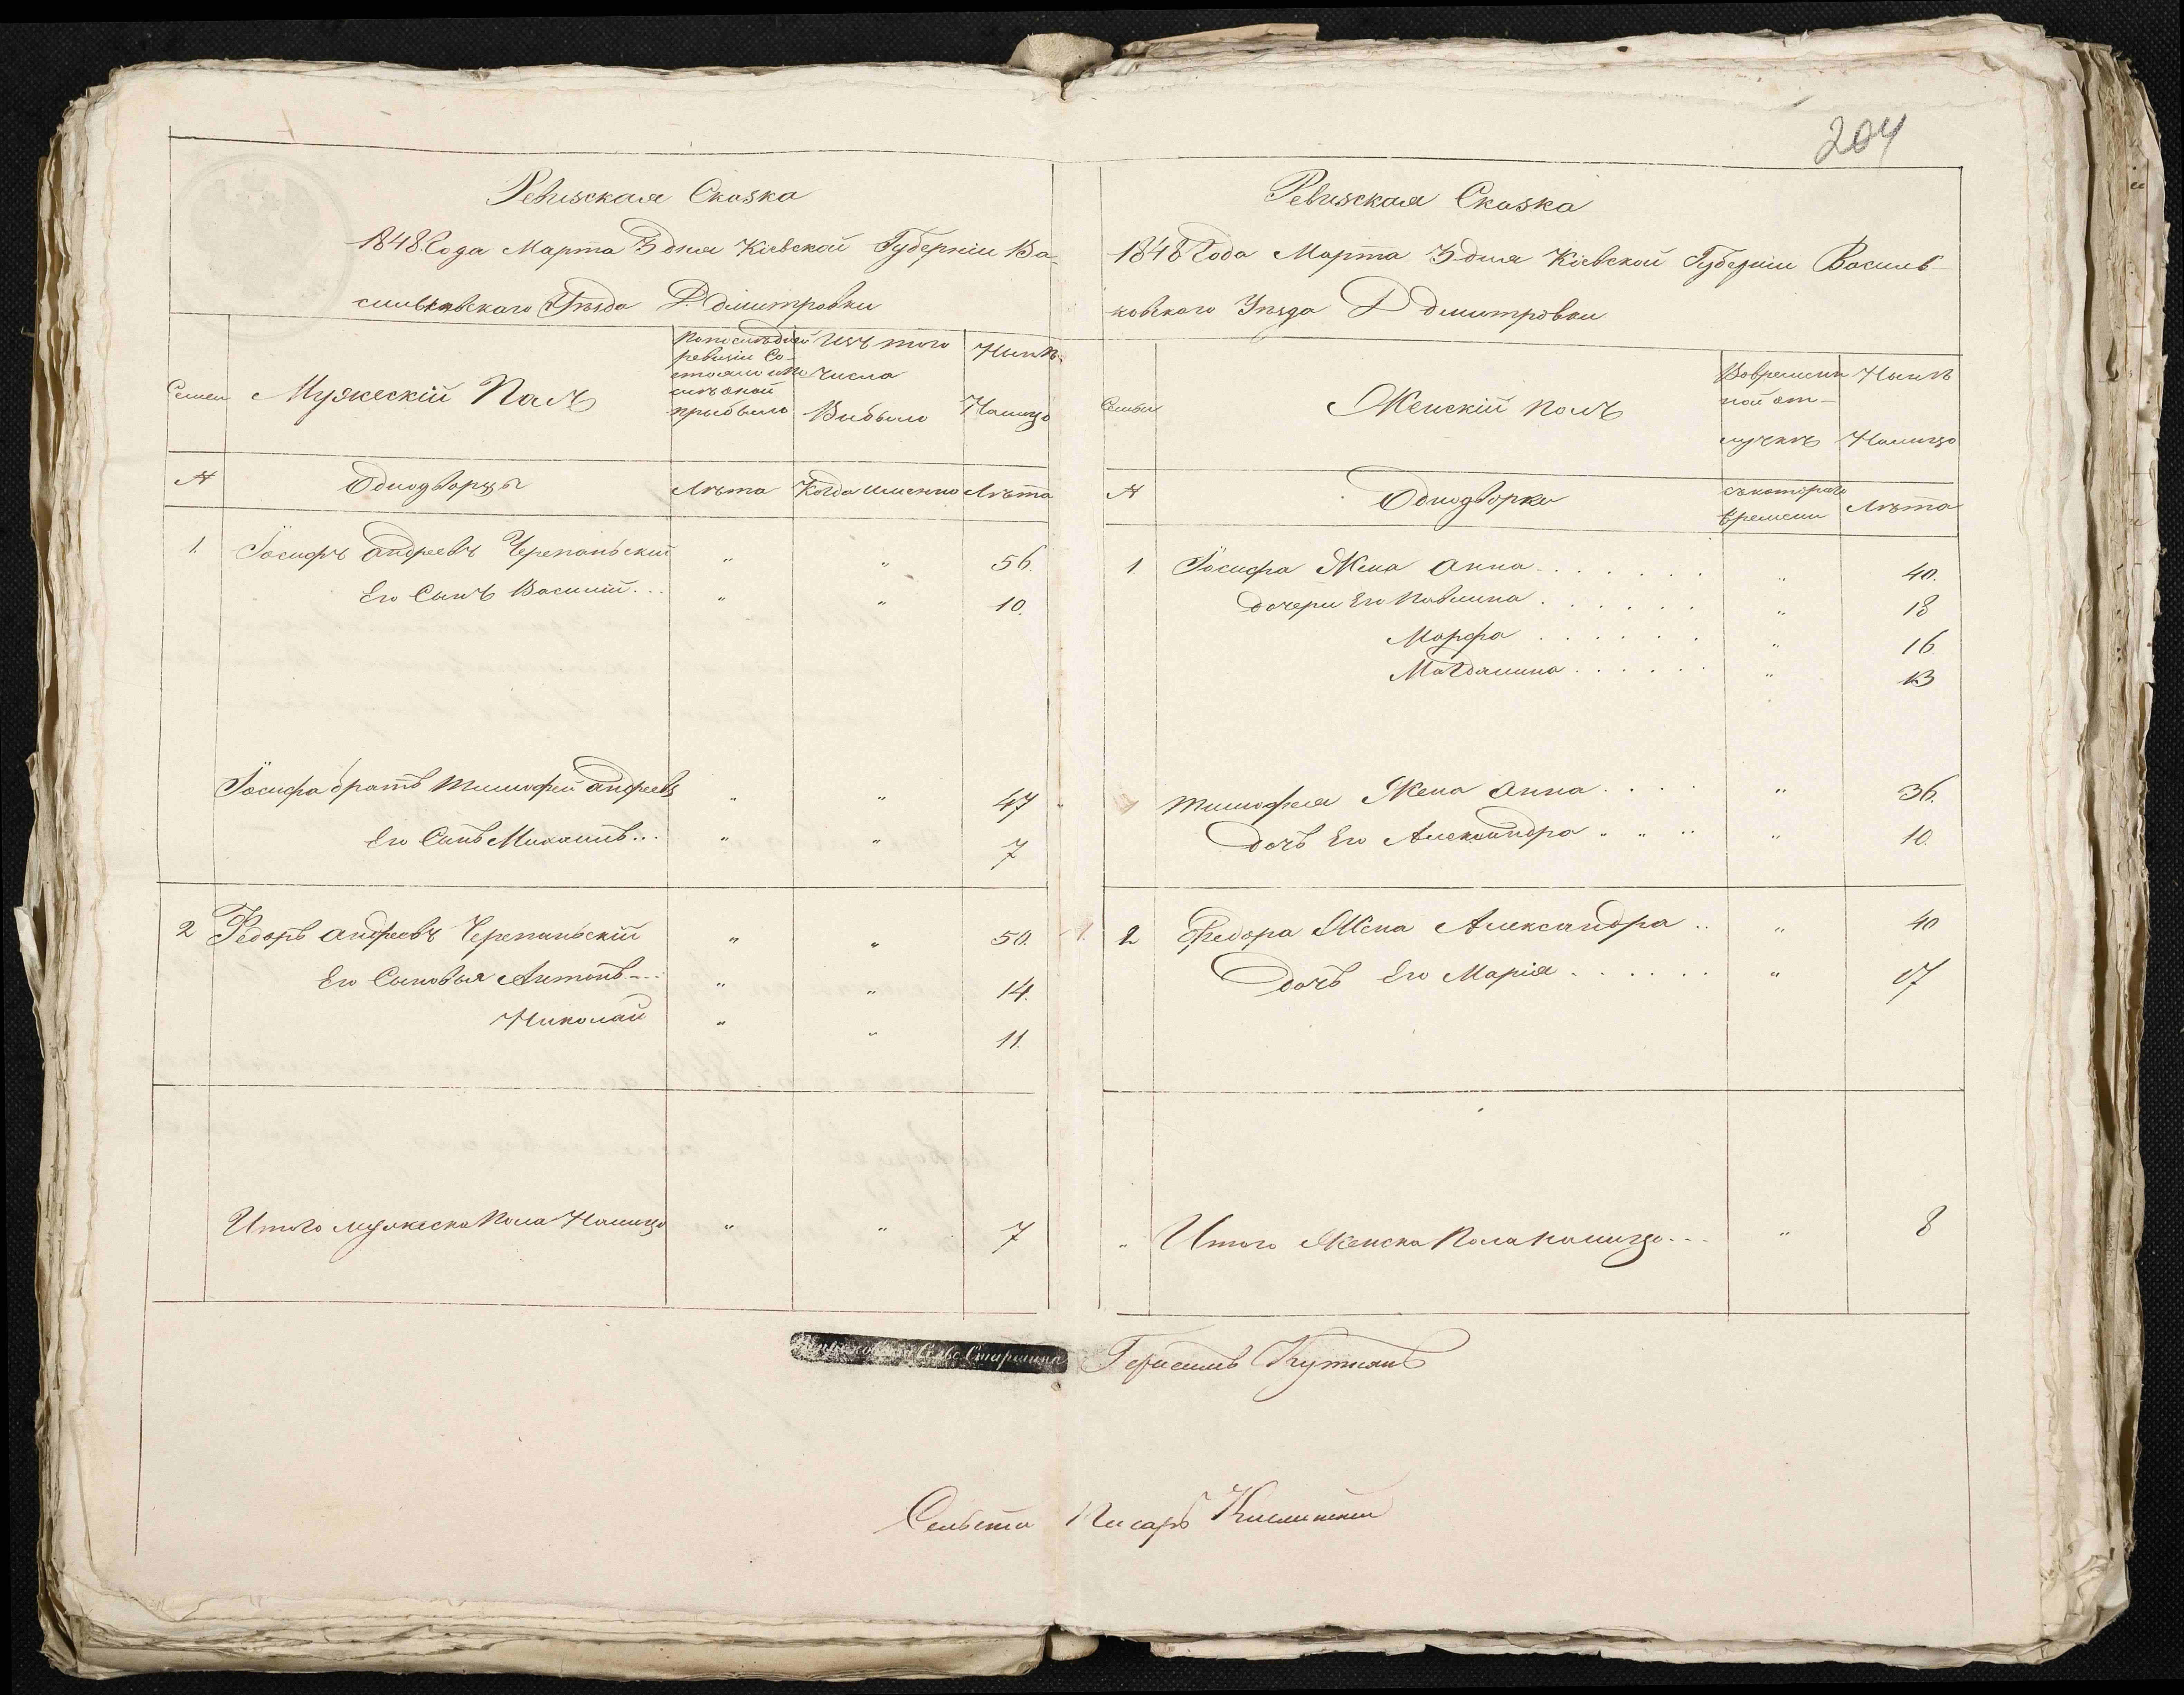 204
Ревизская Сказка
1848 Года Марта 3 дня Кіевской Губерніи Ва-
сильковскаго Уѣзда Д. Дмитровки
Семьи
Мужескій Полъ
По последней
ревизіи Со-
стояло и по
слѣ оной
прыбыло
Изъ того
числа
Выбыло
Нынѣ
Налицо
№
Однодворцы
Лѣта
Когда именно
Лѣта
1. Іосифъ Андреевъ Черепаньскій " " 56.
Его Сынъ Василій... " " 10.
Іосифа братъ Тимофей Андреевъ " " 47
Его Сынъ Михаилъ... " " 7
2 Федоръ Андреевъ Черепаньскій " " 50.
Его Сыновья Антонъ... " " 14.
Николай " " 11.
Итого мужеска Пола Налицо " " 7
Ревизская Сказка
1848 Года Марта 3 дня Кіевской Губерніи Василь-
ковскаго Уѣзда Д Дмитровки
Семьи
Женскій полъ
Вовремен
ной от-
лучкѣ
Нынѣ
Налицо
№
Однодворки
съ котораго
времени
Лѣта
1 Іосифа Жена Анна . . . . . . " 40.
Дочери Его Павлина . . . . . . " 18
Марфа . . . . . . " 16
Магдалина . . . . . . " 13
Тимофея Жена Анна . . . . " 36.
Дочь Его Александра " " " " 10.
2 Федора Жена Александра .. " 40
Дочь Его Марія . . . . . . " 17
" Итого Женска Пола налицо... " 8
Сельс. Старшина
Герасимъ
Писарь